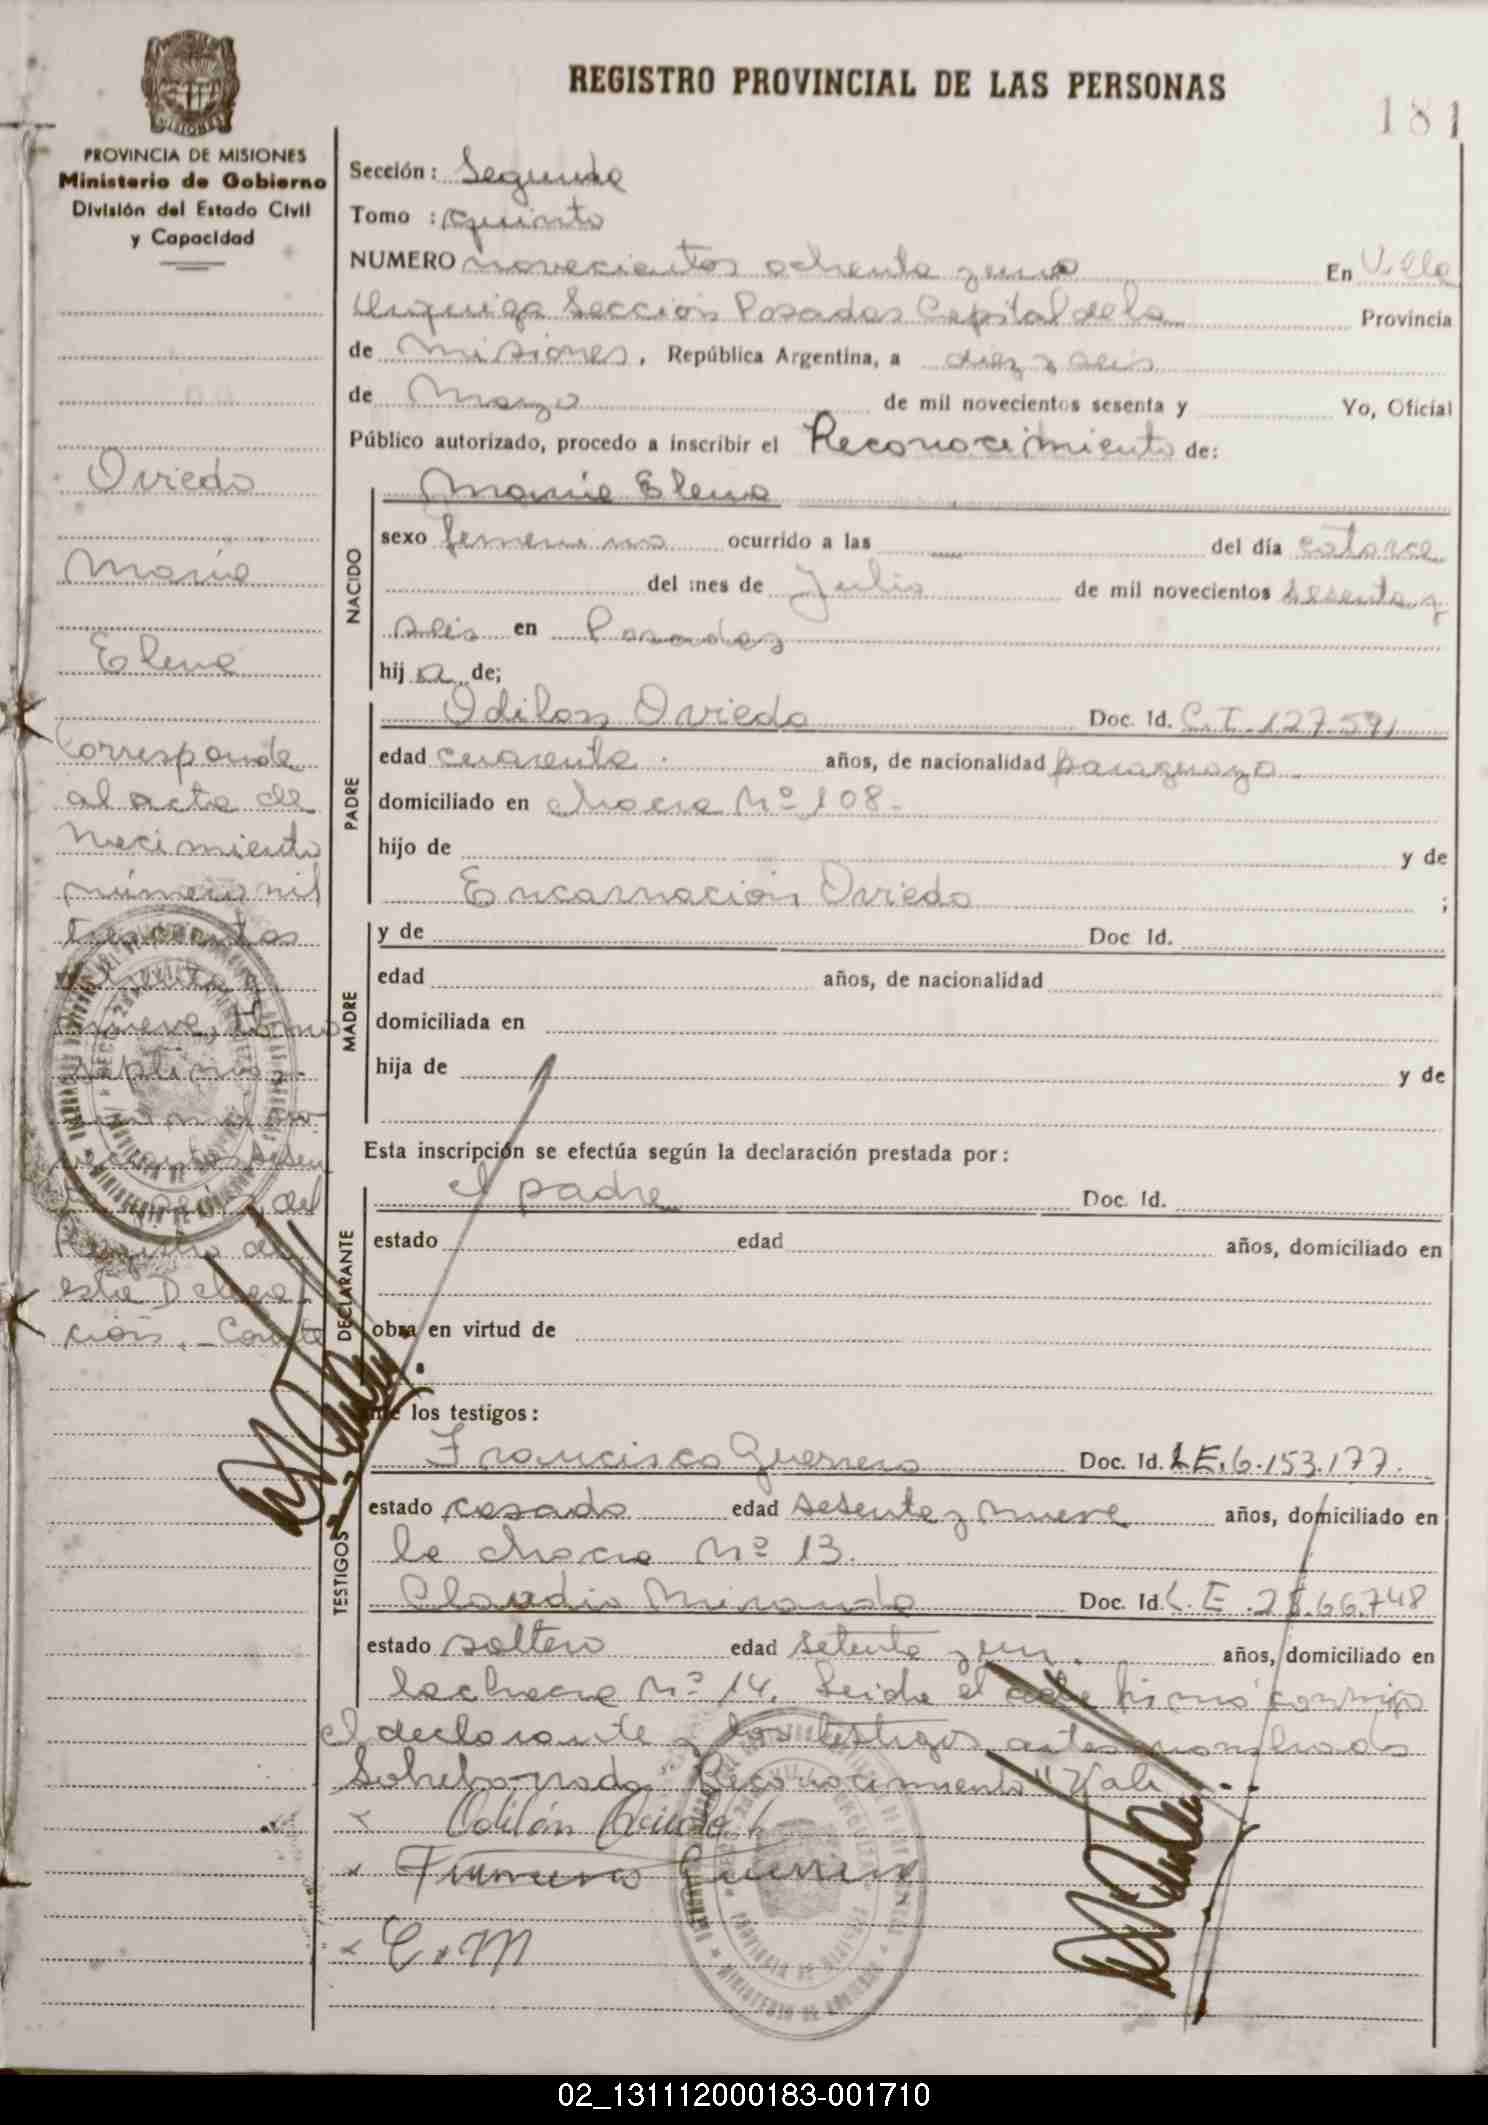 REGISTRO PROVINCIAL DE LAS PERSONAS
181
MISIONES
PROVINCIA DE MISIONES
Ministerio de Gobierno
División del Estado Civil
y Capacidad
Oviedo
María
Elena
Corresponde
al acta de
Nacimiento
número mil
trescientos
nueve, tomo
séptimo,
del
Registro de
esta Delega
ción. - Conste
Sección: Segunda
Tomo : quinto
NUMERO novecientos ochenta y uno En Villa
Urquiza Sección Posadas Capital de la Provincia
de Misiones, República Argentina, a diez y seis
de Marzo de mil novecientos sesenta y Yo, Oficial
Público autorizado, procedo a inscribir el Reconocimiento de:
NACIDO
María Elena
sexo femenino ocurrido a las del día catorce
del mes de Julio de mil novecientos sesenta y
seis en Posadas
hij a de;
PADRE
Odilon Oviedo Doc. Id. C.I. 127.591
edad cuarenta años, de nacionalidad paraguayo
domiciliado en chacra Nº 108.
hijo de y de
Encarnación Oviedo ;
MADRE
y de Doc Id.
edad años, de nacionalidad
domiciliada en
hija de y de
Esta inscripción se efectúa según la declaración prestada por:
DECLARANTE
el padre Doc. Id.
estado edad años, domiciliado en
obra en virtud de
los testigos:
TESTIGOS
Francisco Guerrero Doc. Id. L.E. 6.153.177.
estado casado edad sesenta y nueve años, domiciliado en
la chacra Nº 13.
Claudio Miranda Doc. Id. L.E. 66.748
estado soltero edad setenta y un años, domiciliado en
la chacra Nº 14. Leida el acta firmó conmigo
el declarante y los testigos antes nombrados
Sobreborrado "Reconocimiento" Vale
Odilón Oviedo
Francisco Guerrero
C. M
02_131112000183-001710